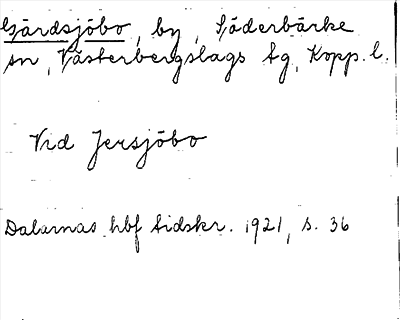 Gärdsjöbo, by, Söderbärke
sn, Västerbergslags tg, Kopp. l.
Vid Jersjöbo
Dalarnas hbf tidskr. 1921, s. 36